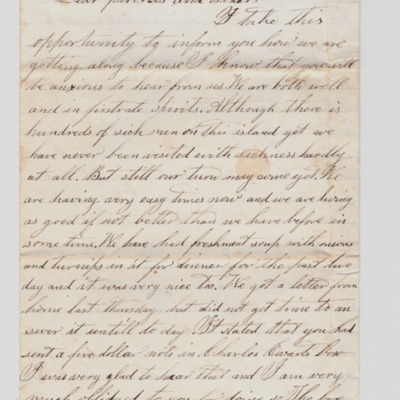 Dear parents and sister.
I take this
opportunity to inform you how we are
getting along because I know that you will
be anxious to hear from us. We are both well
and in firstrate spirits. Although there is
hundreds of sick men on this island yet we
have never been visited with sickness hardly
at all. But still our turn may come yet. We
are having very easy times now and we are living
as good if not better than we have before in
some time. We have had fresh meat soup with
and turnips in it for dinner for the past two
day and it was very nice too. We got a letter from
home last thursday but did not get time to an
swer it untill to day. It stated that you had
sent a five dollar note in Charles Box
I was very glad to hear that and I am very
much obliged to you for doing so The box